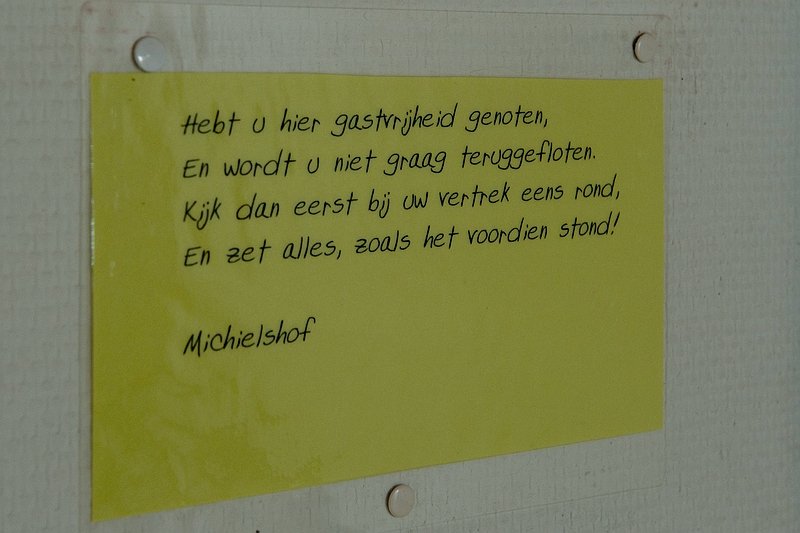 Hebt u hier gastvrijheid genoten,
En wordt u niet graag teruggefloten.
Kijk dan eerst bij uw vertrek eens rond,
En zet alles, zoals het voordien stond!
Michielshof